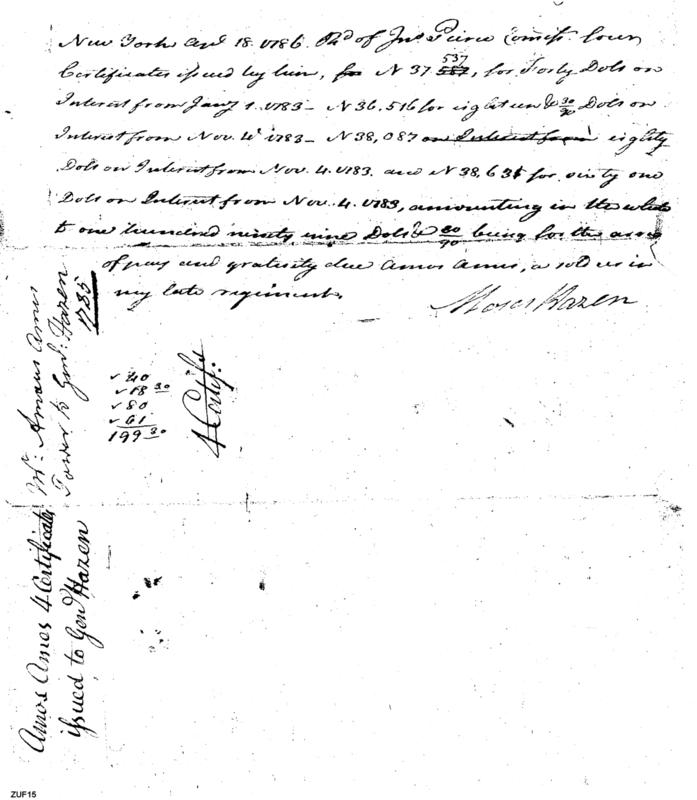 New York April 18. 1786. Rd of Jno Pierce Commissr. four
Certificates issued by him, for N 37 537 587, for Forty Dols on
Interest from Jany 1. 1783 - N 36,516 for eighteen & 30/90 Dols on
Interest from Nov. 4th 1783 - N 38,087 on Interest from eighty
Dols on Interest from Nov. 4. 1783. and N 38,631 for sixty one
Dols on Interest from Nov. 4. 1783, amounting in the whole
to one hundred ninety nine Dols & 30/90 being for the
of pay and gratuity due Amos Amus, a soldier in
my late regiment.
Moses Hazen
✓ 40
✓ 18 30
✓ 80
✓ 61
199 30
4 Certifs.
Mr: Amaus Amus
Power to Genl: Hazen
1785
Amos Amos 4 Certificates
issued to Genl Hazen
ZUF15